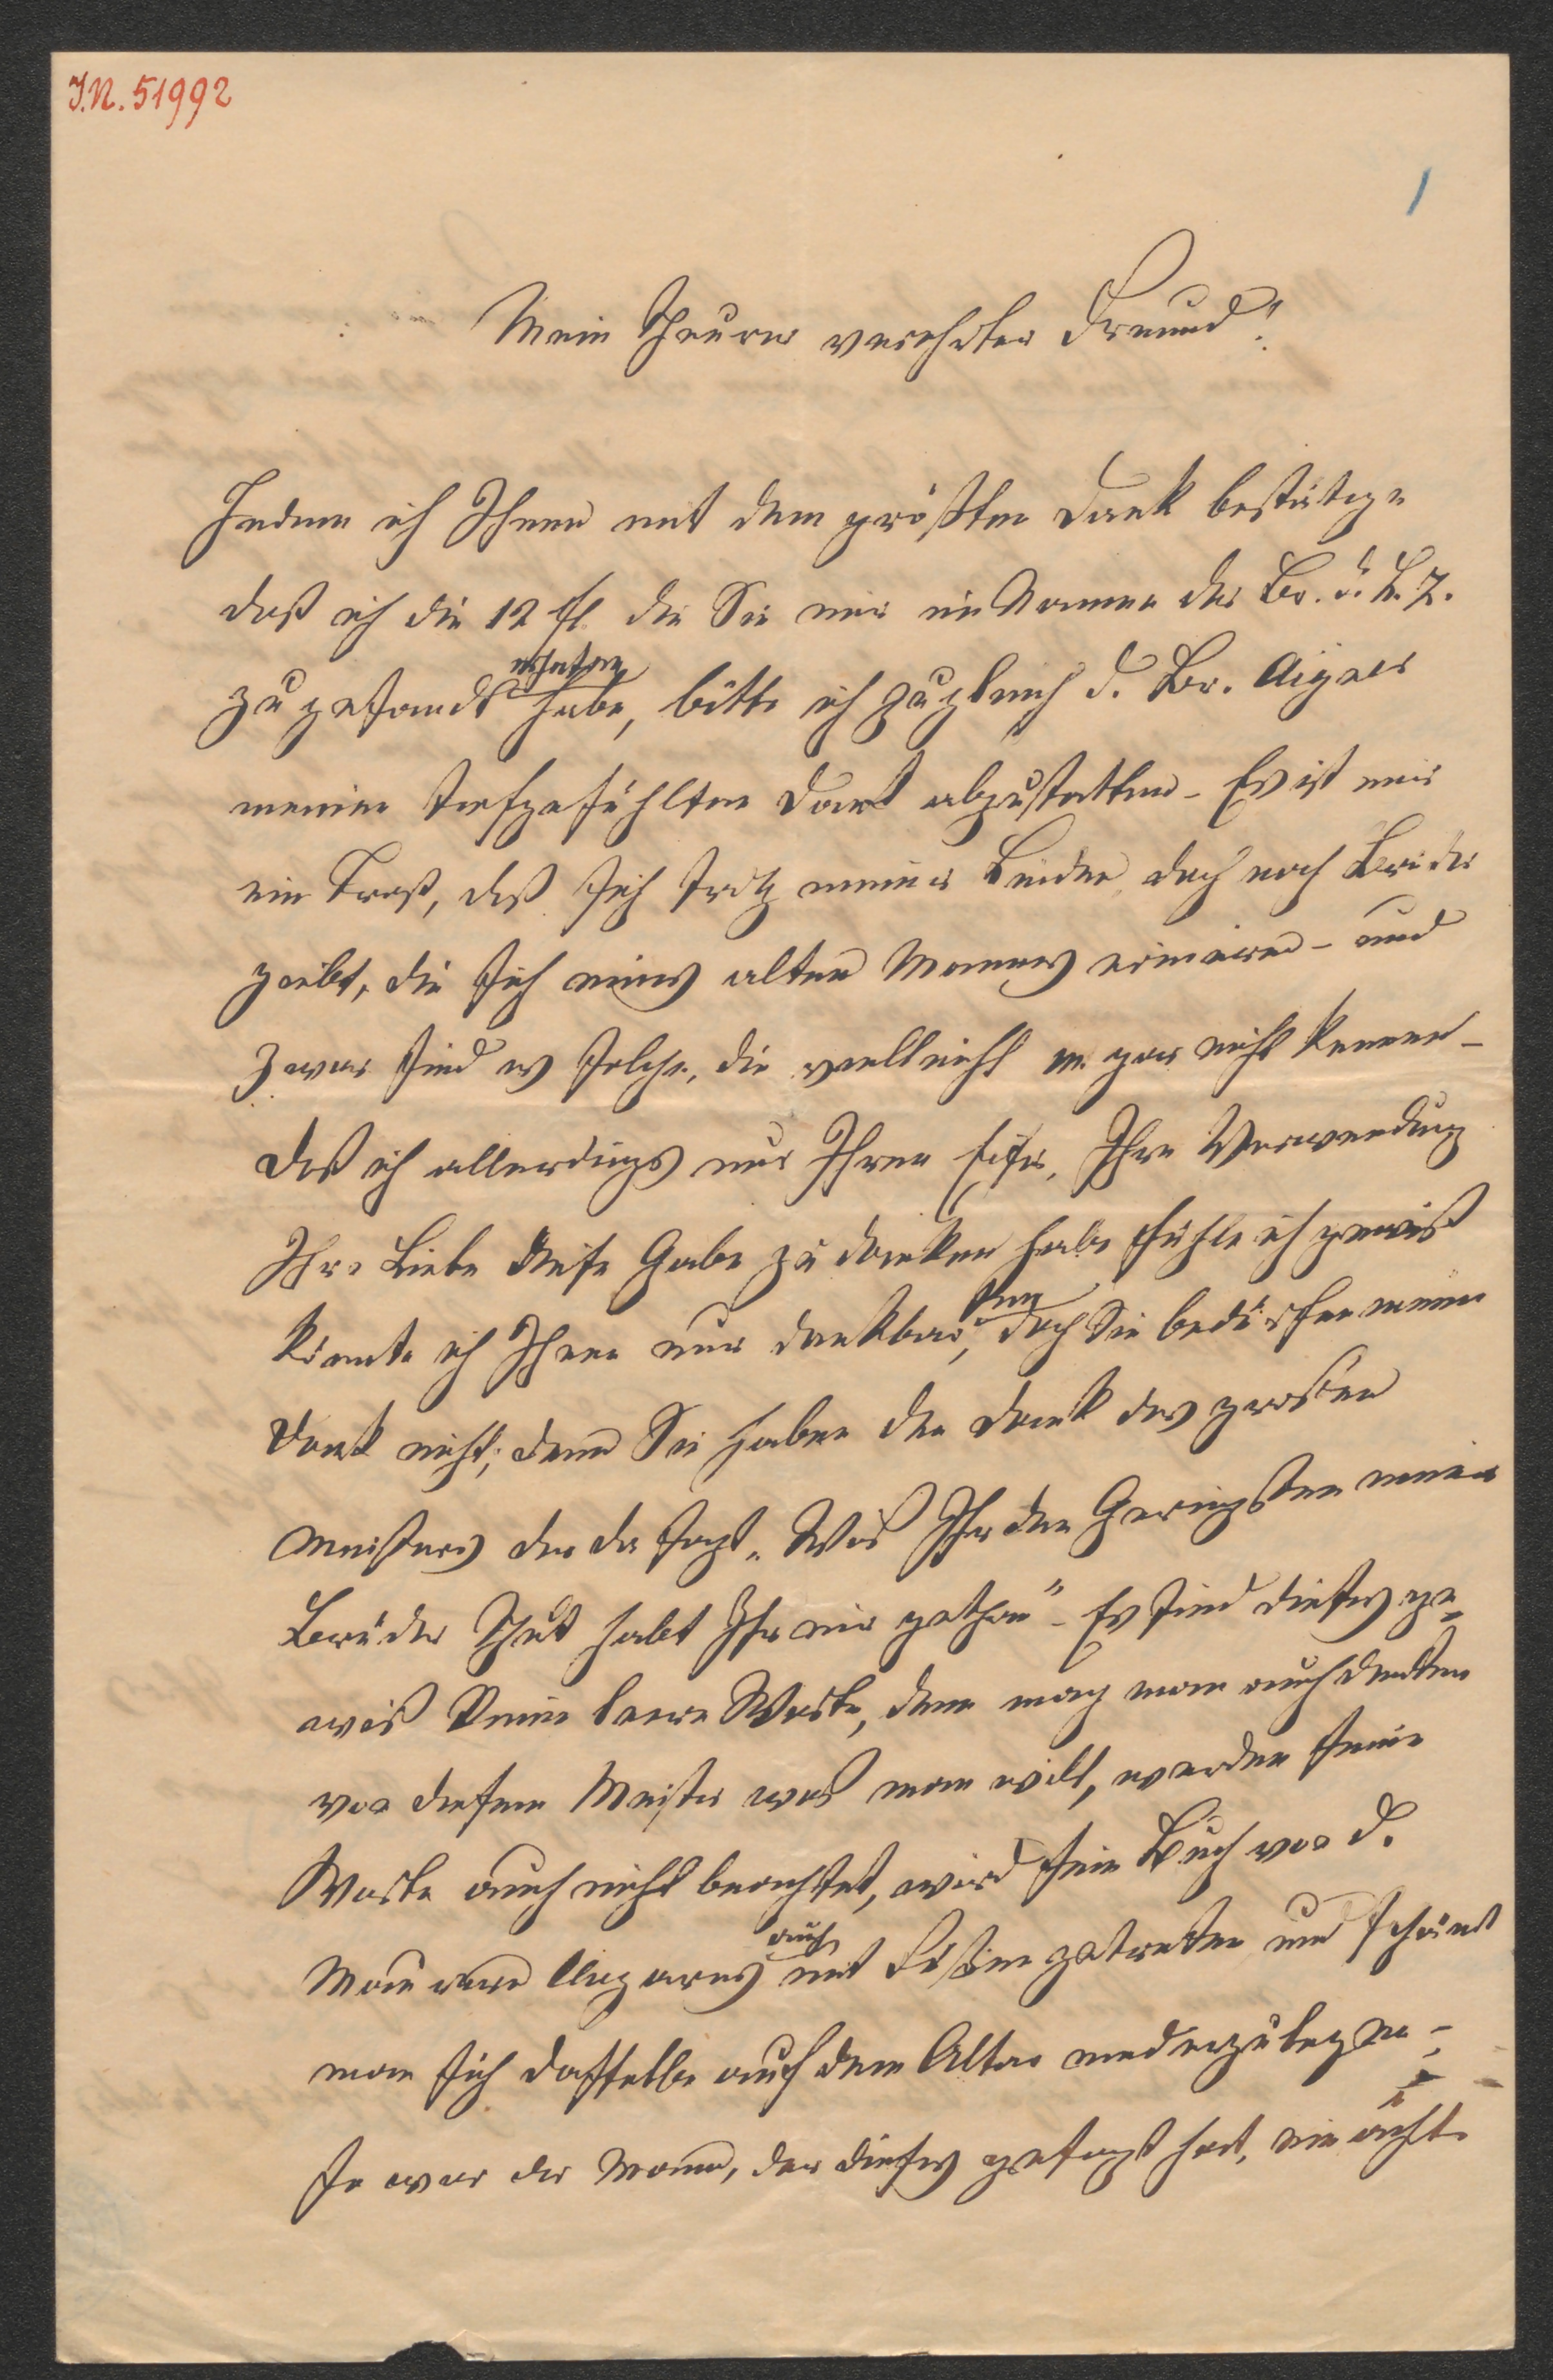 I.N. 51992
1
Mein Theurer verehrter Freund!
Indem ich Ihnen mit dem größten Dank bestätige
daß ich die 12 fl die Sie mir im Namen der Br. d. L. Z.
zugesandt erhalten habe, bitte ich zugleich d. Br. Aigner
meinen tiefgefühlten Dank abzustatten - Es ist mir
ein Trost, daß sich trotz meiner Leiden, doch noch Brüder
gibt, die sich eines alten Mannes erinnern - und
zwar sind es solche, die vielleicht m. gar nicht kennen -
daß ich allerdings nur Ihren Eifer, Ihre Verwendung
Ihre Liebe diese Gabe zu danken habe fühle ich gewiß
könnte ich Ihnen nur dankbar sein, doch Sie bedürfen meinen
Dank nicht, denn Sie haben den Dank des großen
Meisters der da sagt „Was Ihr den Geringsten meiner
Brüder Thut habt Ihr mir gethan" - Es sind dieses ge-
wiß keine leere Worte, denn mag man auch denken
von diesem Meister was man will, werden seine
Worte auch nicht beachtet, wird sein Buch von d.
Maurern Ungarns auch mit Füßen getreten und schämt
man sich dasselbe auf dem Altar niederzulegen -
so war der Mann, der dieses gesagt hat, ein ächter